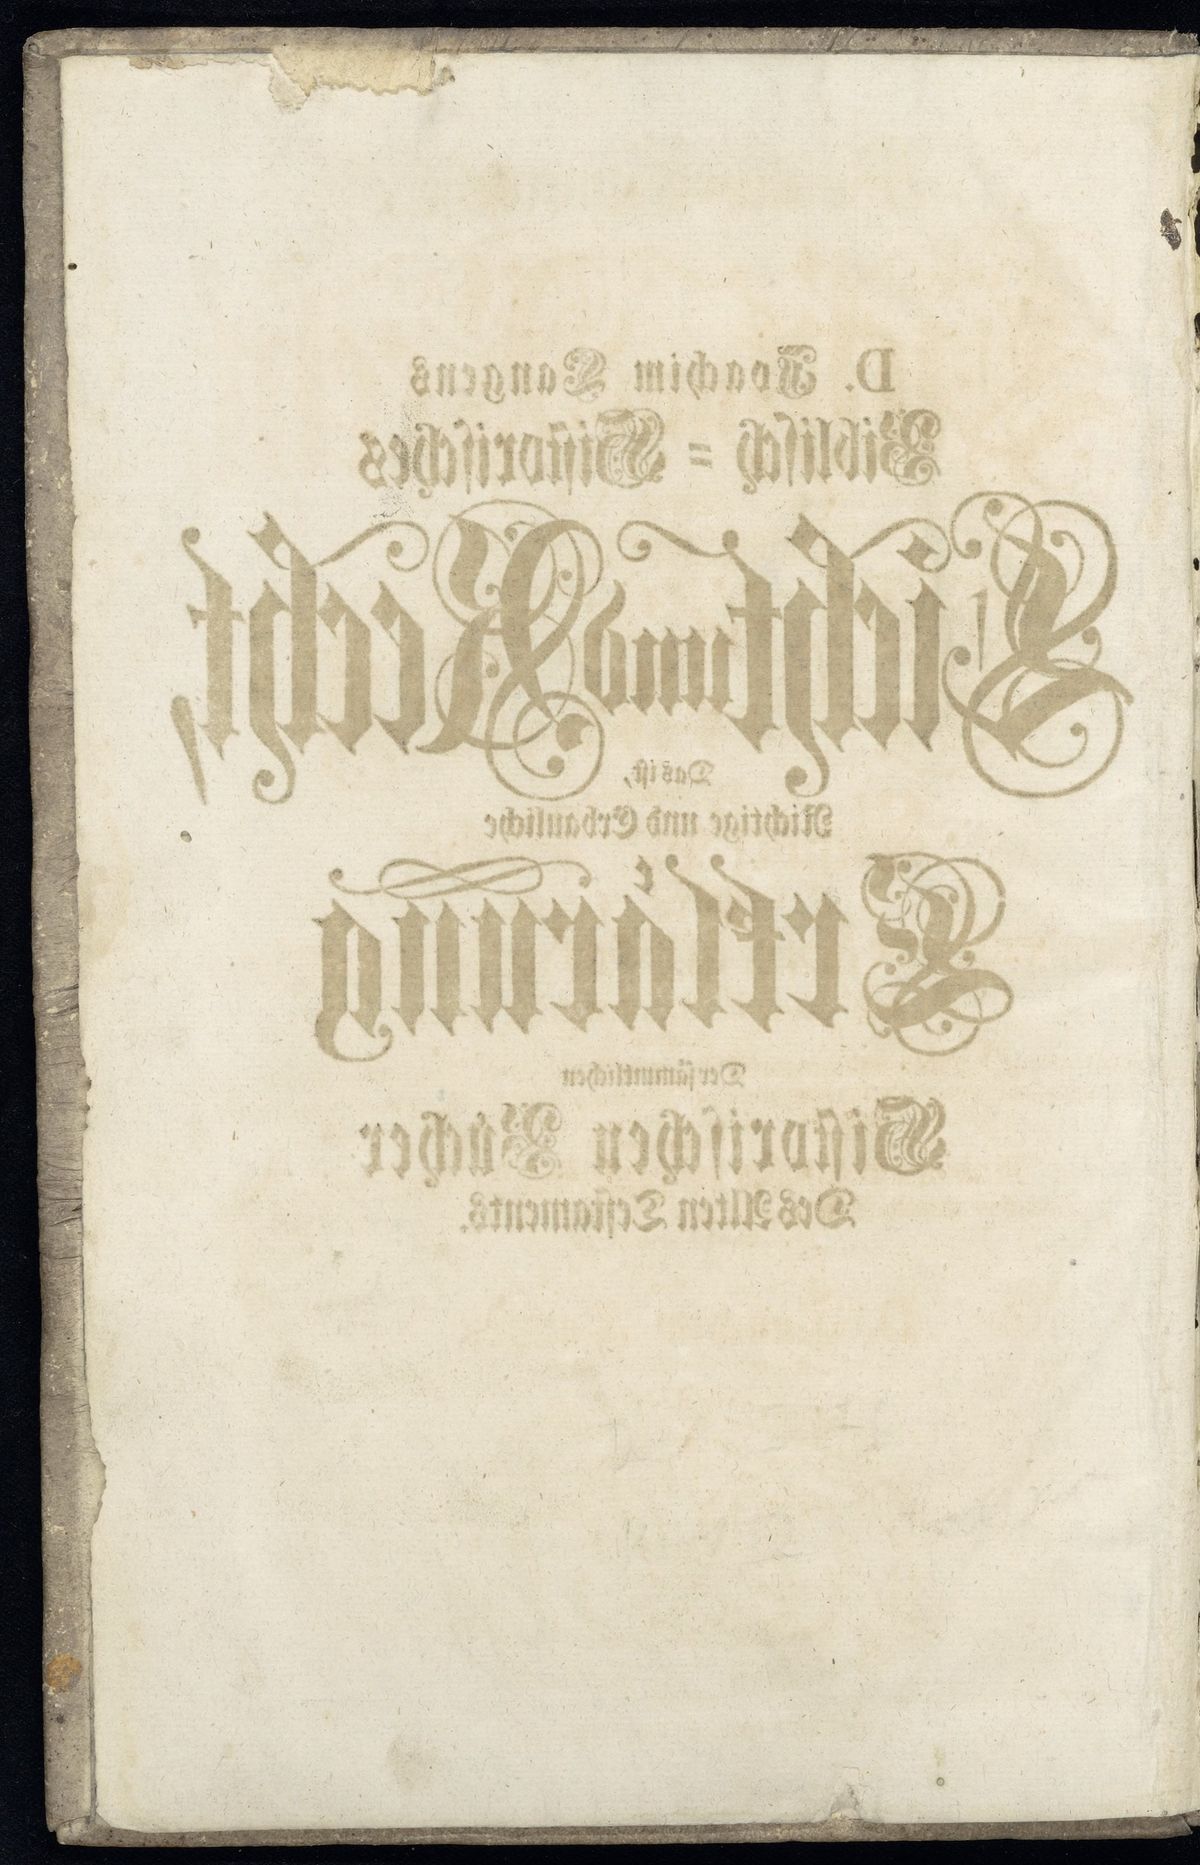 D. Joachim Langens
Biblisch = Historisches
Licht und Recht,
Das ist,
Richtige und Erbauliche
Erklaͤrung
Der sämmtlichen
Historischen Buͤcher
Des Alten Testaments.